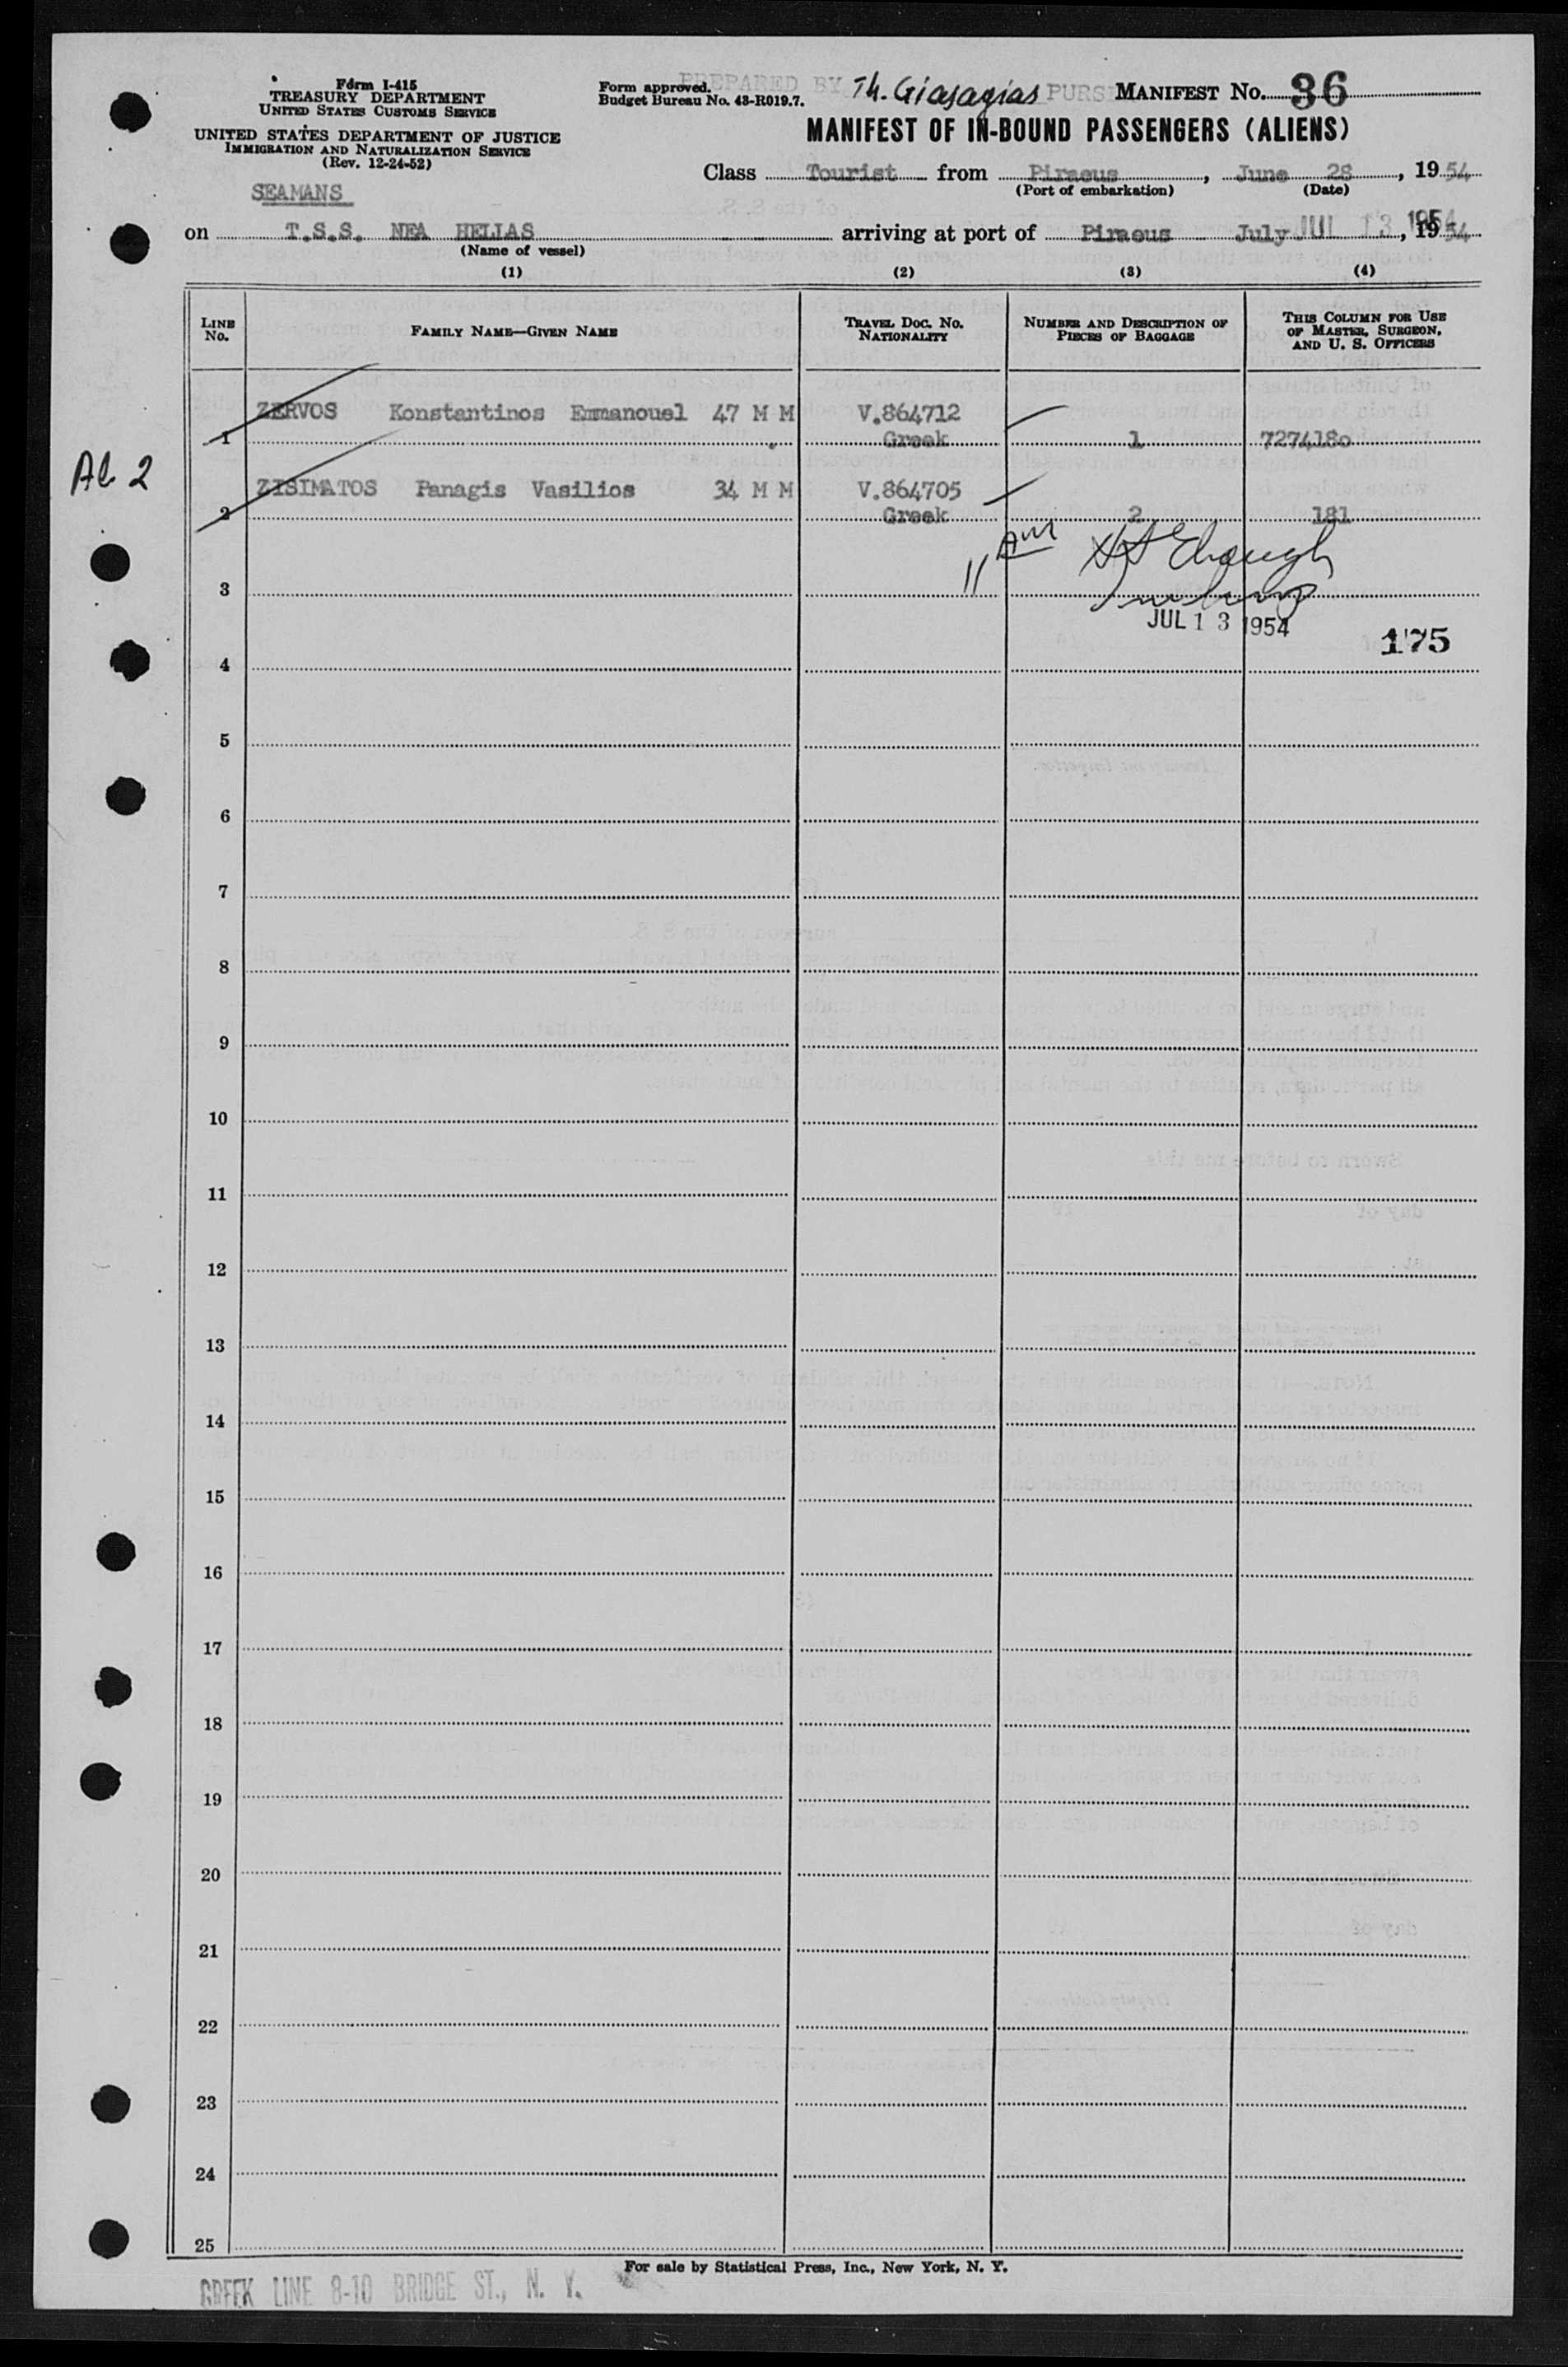 Form I-415
TREASURY DEPARTMENT
UNITED STATES CUSTOMS SERVICE
UNITED STATES DEPARTMENT OF JUSTICE
IMMIGRATION AND NATURALIZATION SERVICE
(Rev. 12-24-52)
Form approved.
Budget Bureau No. 43-R019.7.
PREPARED BY Th. Giasagias PURS
MANIFEST NO. 36
MANIFEST OF IN-BOUND PASSENGERS (ALIENS)
Class Tourist from Piraeus, June 28, 1954
(Port of embarkation) (Date)
SEAMANS
on T.S.S. NEA HELLAS arriving at port of Piraeus July JUL 13 1954, 1954
(Name of vessel)
(1) (2) (3) (4)
LINE NO. FAMILY NAME—GIVEN NAME TRAVEL DOC. NO. NATIONALITY NUMBER AND DESCRIPTION OF PIECES OF BAGGAGE THIS COLUMN FOR USE OF MASTER, SURGEON, AND U. S. OFFICERS
ZERVOS Konstantinos Emmanouel 47 M M V.864712
1 Greek 1 7274180
Al 2
ZISIMATOS Panagis Vasilios 34 M M V.864705
2 Greek 2 181
11 AM
3
JUL 13 1954
175
4
5
6
7
8
9
10
11
12
13
14
15
16
17
18
19
20
21
22
23
24
25
For sale by Statistical Press, Inc., New York, N. Y.
GREEK LINE 8-10 BRIDGE ST., N. Y.